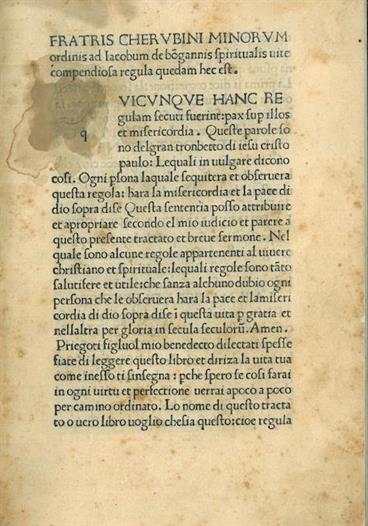 FRATRIS CHERVBINI MINORVM
ordinis ad Iacobum de bōgannis spiritualis uite
compendiosa regula quedam hec est.
q VICVNQVE HANC RE
gulam secuti fuerint: pax sup illos
et misericordia. Queste parole so
no delgran tronbetto di iesu cristo
paulo: Lequali in uulgare dicono
cosi. Ogni psona laquale sequitera et obseruera
questa regola: hara la misericordia et la pace di
dio sopra dise Questa sententia posso attribuire
et apropriare secondo el mio iudicio et parere a
questo presente tractato et breue sermone. Nel
quale sono alcune regole appartenenti al uiuere
christiano et spirituale: lequali regole sono tāto
salutifere et utile: che sanza alchuno dubio ogni
persona che le obseruera hara la pace et lamiseri
cordia di dio sopra dise ī questa uita p gratia et
nellaltra per gloria in secula seculorū. Amen.
Priegoti figluol mio benedecto dilectati spesse
fiate di leggere questo libro et diriza la uita tua
come inesso ti sinsegna: pche spero se cosi farai
in ogni uirtu et perfectione uerrai apoco a poco
per camino ordinato. Lo nome di questo tracta
to o uero libro uoglio chesia questo: cioe regula